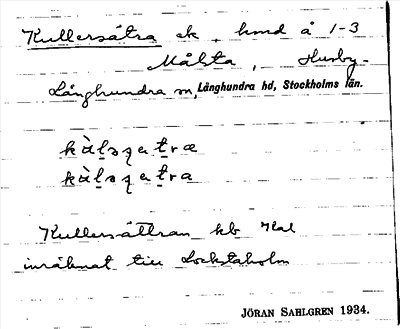 Kullersätra ek, hmd å 1-3
Målsta, Husby-
Långhundra sn, Långhundra hd, Stockholms län.
kùlsqatræ
kùlsqatra
Kullersättran kb Kal
inräknat till Lockstaholm
JÖRAN SAHLGREN 1934.